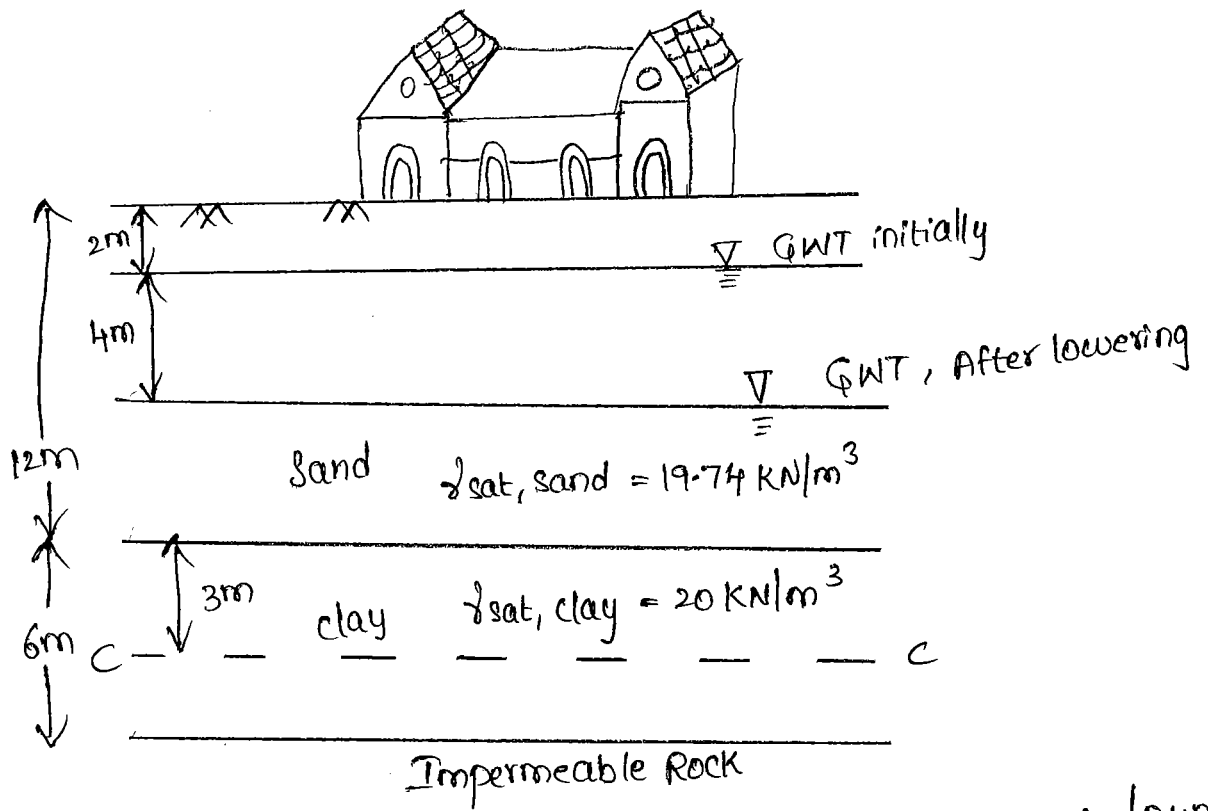 2m
GWT initially
4m
GWT, After lowering
12m
Sand γsat, sand = 19.74 KN/m³
3m
clay γsat, clay = 20 KN/m³
6m
C C
Impermeable Rock